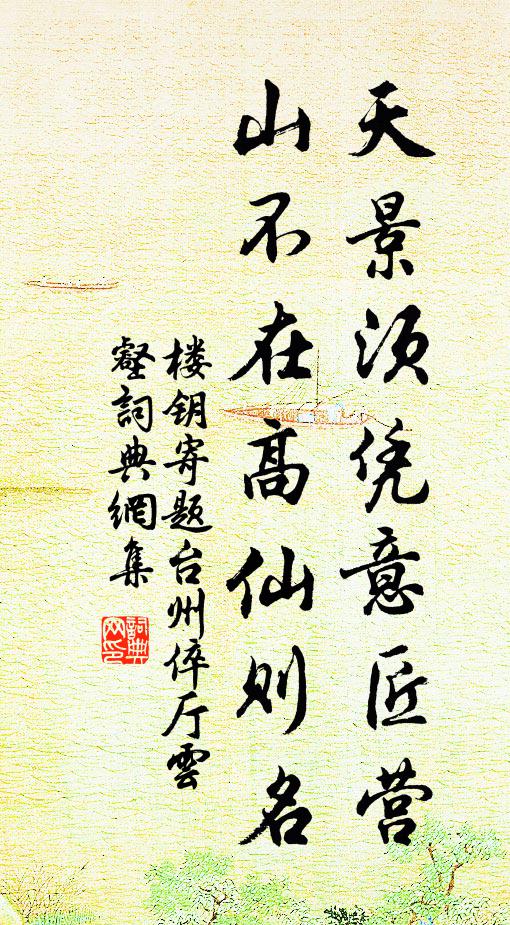 天景须凭意匠营
山不在高仙则名
楼钥寄题台州倅厅雲
壑詞典網集
詞典网印